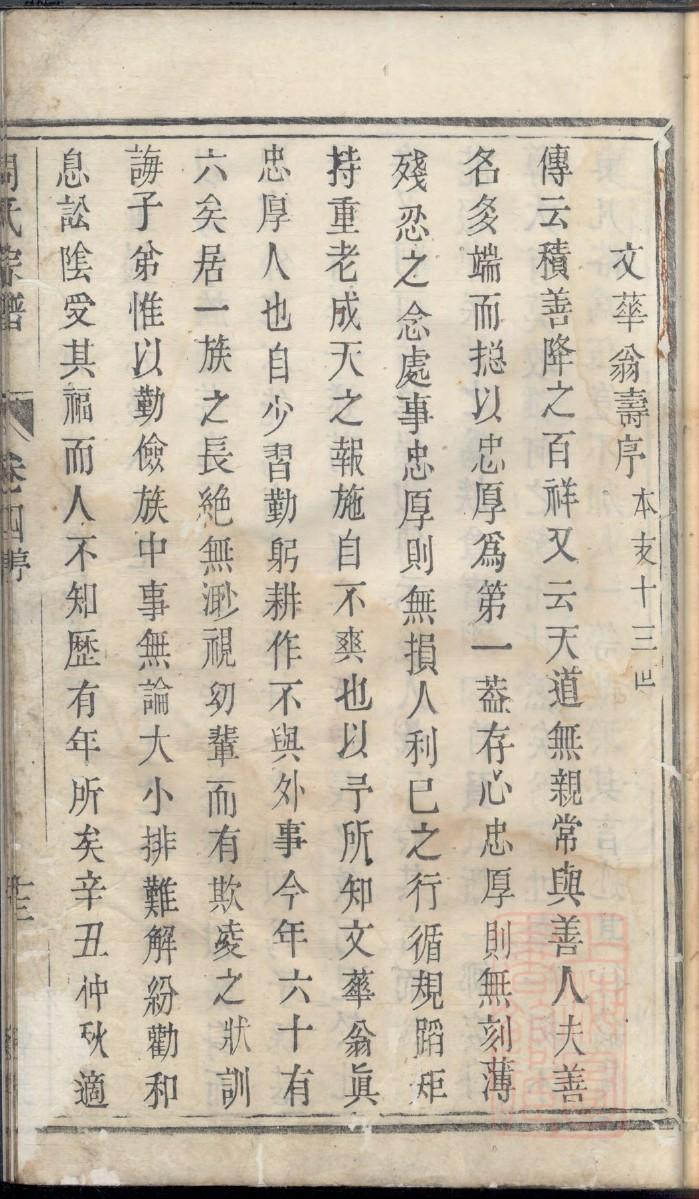 文華翁壽序 本支十三世
傳云積善降之百祥又云天道無親常與善人夫善
名多端而摠以忠厚爲第一葢存心忠厚則無刻薄
殘忍之念處事忠厚則無損人利已之行循規蹈矩
持重老成天之報施自不爽也以予所知文華翁眞
忠厚人也自少習勤躬耕作不與外事今年六十有
六矣居一族之長絶無渺視幼輩而有欺凌之狀訓
誨子弟惟以勤儉族中事無論大小排難解紛勸和
息訟陰受其福而人不知歷有年所矣辛丑仲秋適
周氏宗譜 卷四 序